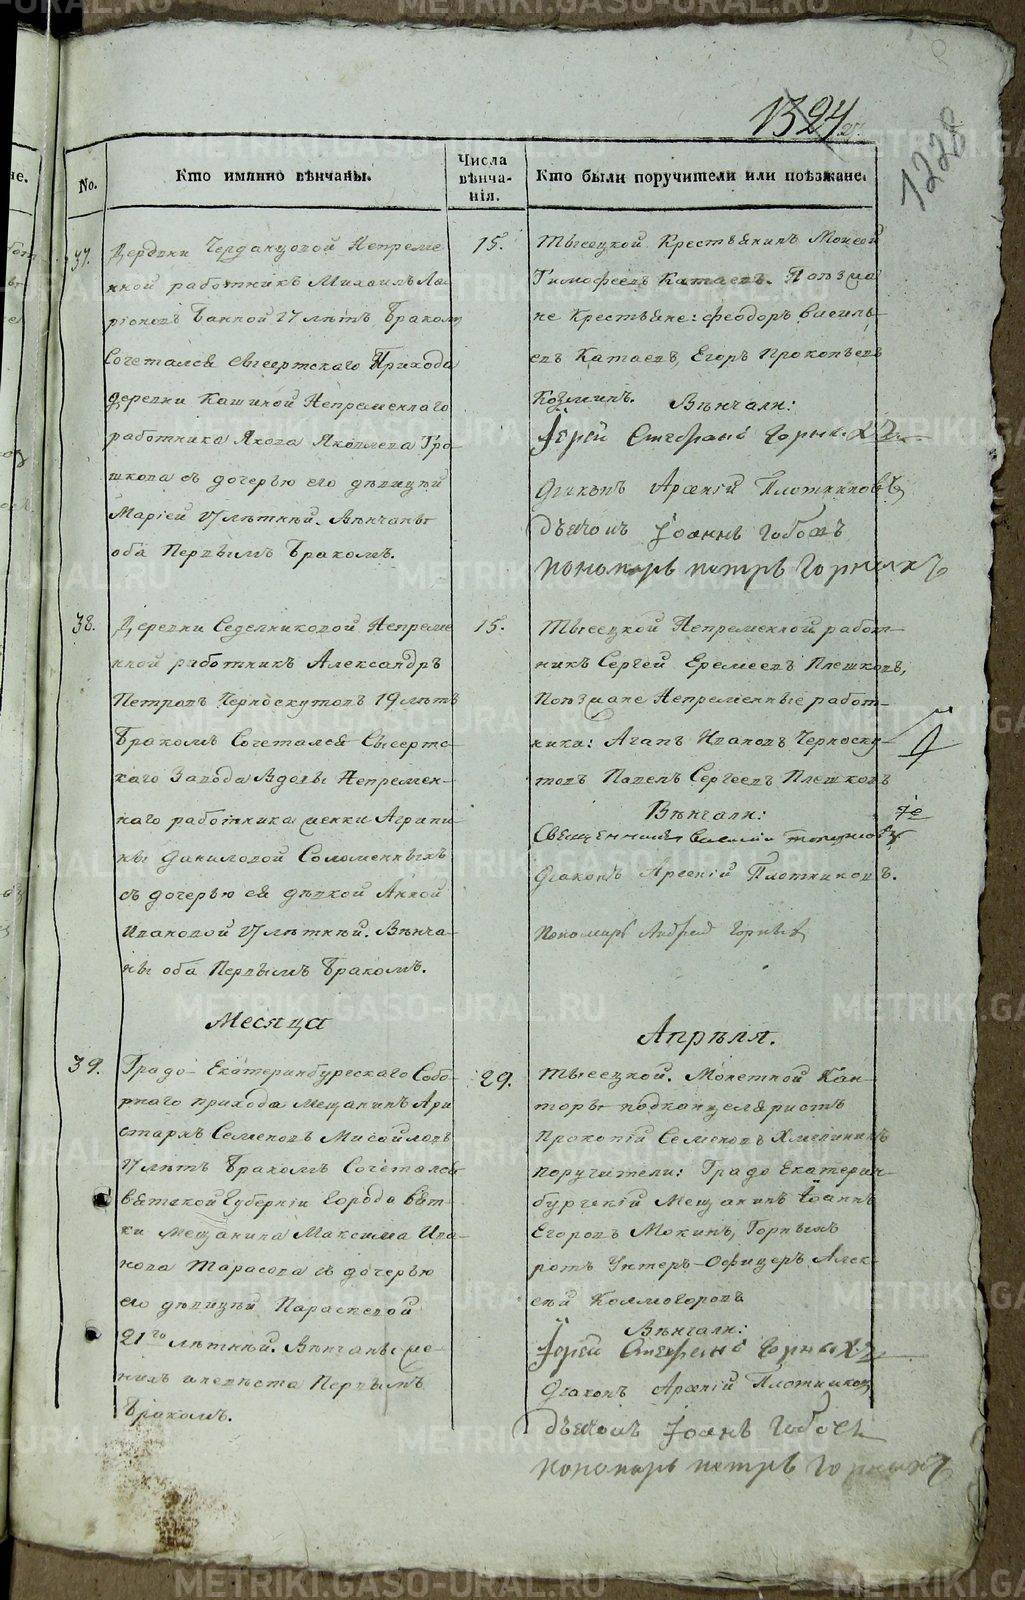 1324
1228
No.
Кто имянно вѣнчаны.
Числа вѣнча-
нія.
Кто были поручители или поѣзжане.
37.
Деревни Черданцовой Непреме
нной работникъ Михаилъ Ла
ріоновъ Банной 27 лѣтъ Бракомъ
Сочетался Сысертскаго Прихода
деревни Кашиной Непременнаго
работника Якова Яковлева Тро
шкова съ дочерью его дѣвицей
Маріей 17 лѣтней. Вѣнчаны
оба Первымъ Бракомъ.
15.
Тысецкой Крестьянинъ Моисей
Тимофеевъ Катаевъ. Поѣзжа
не Крестьяне: Феодоръ Василь-
евъ Катаевъ, Егоръ Прокопьевъ
Козминъ.
Вѣнчали:
Іерей Стефанъ Горныхъ
Діаконъ Арсеній Плотниковъ
Дьячокъ Іоаннъ
Пономарь Петръ Горныхъ
38.
Деревни Седелниковой Непреме
нной работникъ Александръ
Петровъ Черноскутовъ 19 лѣтъ
Бракомъ Сочетался Сысертс-
каго Завода Вдовы Непремен-
наго работника женки Агрипи-
ны Даниловой Соломенныхъ
съ дочерью ея дѣвкой Анной
Ивановой 17 лѣтней. Вѣнча-
ны оба Первымъ Бракомъ.
15.
Тысецкой Непременной работ-
никъ Сергей Еремеевъ Плешковъ,
Поѣзжане Непременные работ-
ники: Агапъ Ивановъ Черноску-
товъ Павелъ Сергеевъ Плешковъ
Вѣнчали:
Священникъ Василій
Діаконъ Арсеній Плотниковъ.
Пономарь Андрей Горныхъ
Месяца
Апрѣля.
39.
Градо-Екатеринбургскаго Собо-
рнаго прихода Мещанинъ Ари
стархъ Семеновъ Мисайловъ
27 лѣтъ Бракомъ Сочетался
Вятской Губерніи города Вят-
ки Мещанина Максима Ива-
нова Тарасова съ дочерью
его дѣвицей Параскевой
21го лѣтней. Вѣнчаны же-
нихъ и невѣста Первымъ
Бракомъ.
29.
Тысецкой. Монетной Кан-
торы подканцеляристъ
Прокопій Семеновъ Хмелининъ
поручители: Градо Екатерин-
бургскій Мещанинъ Іоаннъ
Егоровъ Мокинъ, Горныхъ
ротъ Унтеръ-Офицеръ Алек-
сей Колмогоровъ
Вѣнчали:
Іерей Стефанъ Горныхъ
Діаконъ Арсеній Плотниковъ
Дьячокъ Іоаннъ
Пономарь Петръ Горныхъ
METRIKI.GASO-URAL.RU